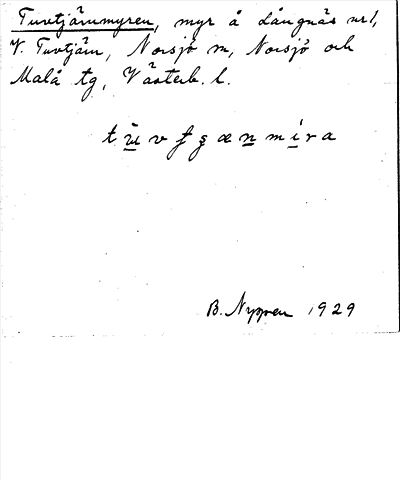 Tuvtjärnmyren, myr å Långnäs nr 1,
V. Tuvtjärn, Norsjö sn, Norsjö och
Malå tg, Västerb. l.
B. Nygren 1929